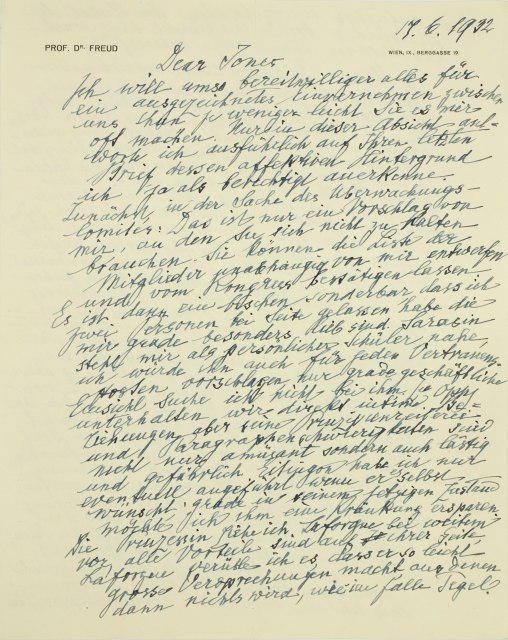 17. 6. 1932
PROF. Dr. FREUD
WIEN, IX., BERGGASSE 19.
Dear Jones
Ich will umso bereitwilliger alles für
ein ausgezeichnetes Einvernehmen zwischen
uns thun je weniger leicht Sie es mir
oft machen. Nur in dieser Absicht ant-
worte ich ausführlich auf Ihren letzten
Brief dessen affektiven Hintergrund
ich ja als berechtigt anerkenne.
Zunächst, in der Sache des Überwachungs-
komitees: Das ist nur ein Vorschlag von
mir, an den Sie sich nicht zu halten
brauchen. Sie können die Liste der
Mitglieder unabhängig von mir entwerfen
und vom Kongress bestätigen lassen
Es ist dann ein bischen sonderbar dass ich
zwei Personen bei Seite gelassen habe die
mir grade besonders lieb sind. Sarasin
steht mir als persönlicher Schüler nahe,
ich würde ihn auch für jeden Vertrauens-
posten vorschlagen, nur grade geschäftliche
Einsicht suche ich nicht bei ihm. Zu Oph
unterhalten wir direkt intime Be-
ziehungen, aber seine Prinzipienreiterei
und Paragraphenschwierigkeiten sind
nicht nur amüsant sondern auch lästig
und gefährlich. Eitingon habe ich nur
eventuell angeführt wenn er selbst
wünscht; grade in seinem jetzigen Zustand
möchte ich ihm eine Kränkung ersparen.
Die Prinzessin ziehe ich Laforgue bei weitem
vor, alle Vorteile sind auf ihrer Seite,
Laforgue verüble ich es dass er so leicht
grosse Versprechungen macht aus denen
dann nichts wird, wie im Falle Tegel.